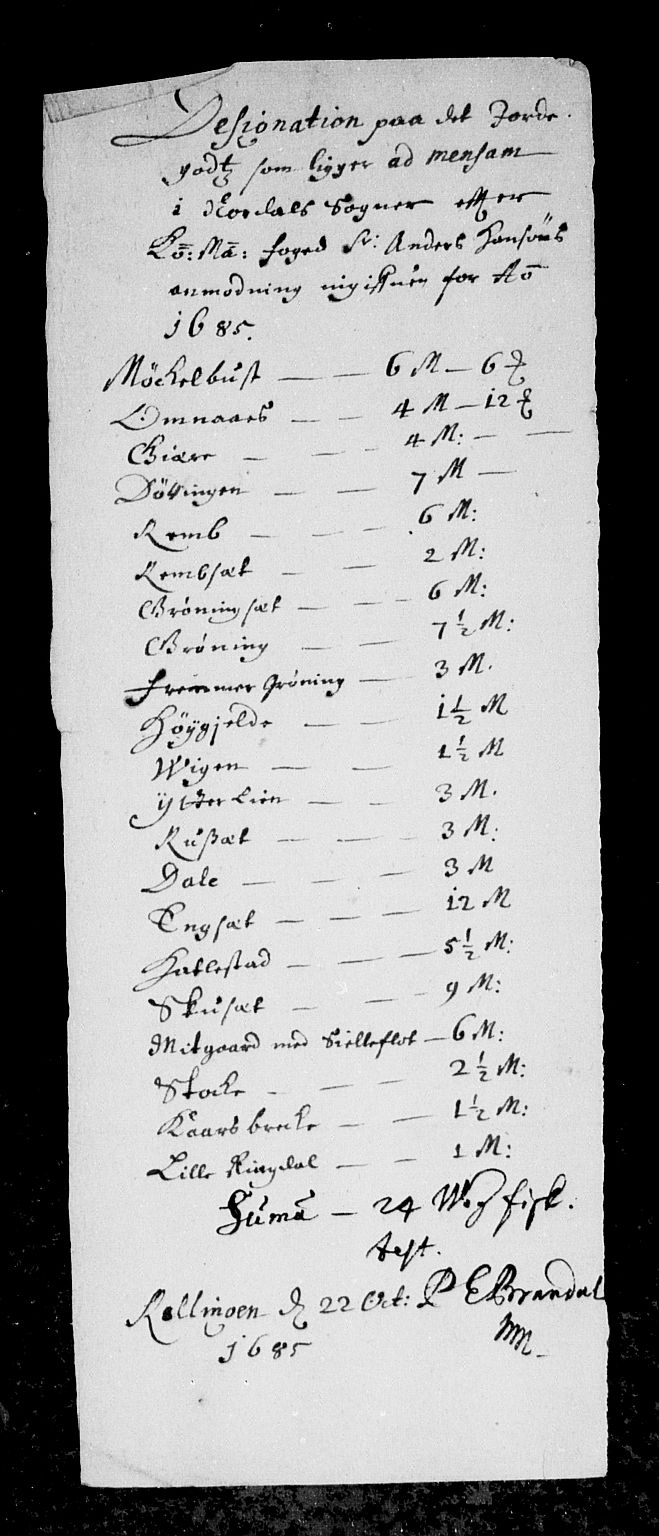 Designation paa det Jorde-
godtz som ligger ad mensam
i Nordals Sogner efter
Kō: Ma: foged Sr: Anders Hansøns
anmodning for Aō
1685.
Möckelbust — — 6 M — 6
Omnaaes — — 4 M — 12
Giære — — — 4 M: — —
DöVingen — — 7 M —
Remb — — — 6 M:
Rembsæt — — 2 M:
Gröningsæt — — 6 M:
Gröning — — 7 1/2 M:
fremmer Gröning — 3 M.
Höygjelde — — 1 1/2 M
Wigen — — 1 1/2 M
ytterlien — — 3 M.
Rußæt — — — 3 M:
Dale — — — 3 M
Engsæt — — — 12 M
Hatlestad — — — 5 1/2 M:
Skusæt — — — 9 M:
Mitgaard med Sielleflot — 6 M:
Stocke — — — 2 1/2 M:
Kaarsbrecke — — 1 1/2 M:
Lille Ringdal — — 1 M:
Sumā — 24 Wog fisk.
test.
Rellingen d 22 Oct: P E Brandal
1685 mm